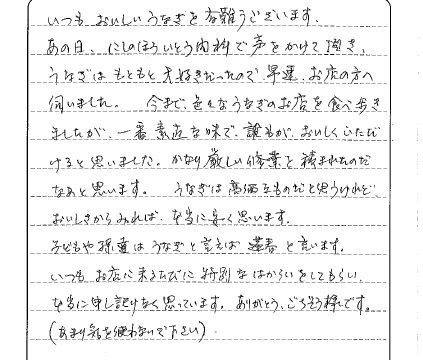 いつも おいしいうなぎを有難うございます。
あの日、にしのほういとう内科で声をかけて頂き、
うなぎは もともと 大好きだったので 早速 お店の方へ
伺いました。 今まで、色んなうなぎのお店を食べ歩き
ましたが、一番 素直な味で、誰もが、おいしくいただ
けると思いました。かなり 厳しい修業を 積まれたのだ
なぁと思います。 うなぎは高価なものだと思うけれど
おいしさからみれば、本当に安く思います。
子どもや孫達は うなぎと言えば と言います。
いつも お店に来るたびに 特別なはからいをしてもらい、
本当に申し訳けなく思っています。ありがとう、ごちそう様です。
(あまり気を使わないで下さい)。